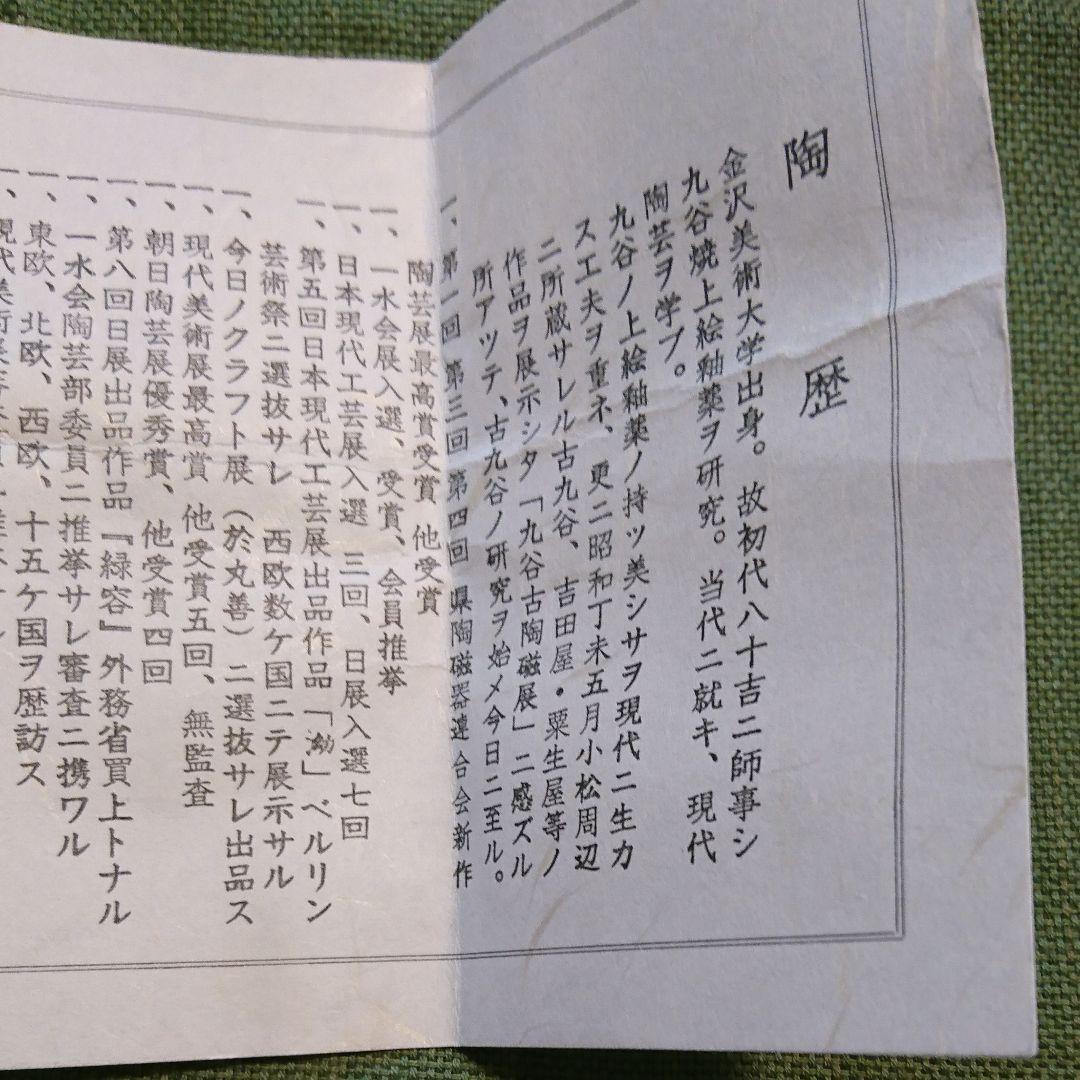 陶歴
金沢美術大学出身。故初代八十吉ニ師事シ
九谷焼上絵釉薬ヲ研究。当代ニ就キ、現代
陶芸ヲ学ブ。
九谷ノ上絵釉薬ノ持ツ美シサヲ現代ニ生カ
ス工夫ヲ重ネ、更ニ昭和丁未五月小松周辺
ニ所蔵サレル古九谷、吉田屋・粟生屋等ノ
作品ヲ展示シタ「九谷古陶磁展」ニ感ズル
所アツテ、古九谷ノ研究ヲ始メ今日ニ至ル。
一、第一回 第三回 第四回 県陶磁器連合会新作
陶芸展最高賞受賞 他受賞
一、一水会展入選、受賞、会員推挙
一、日本現代工芸展入選 三回、日展入選七回
一、第五回日本現代工芸展出品作品「泑」ベルリン
芸術祭ニ選抜サレ 西欧数ケ国ニテ展示サル
一、今日ノクラフト展（於丸善）ニ選抜サレ出品ス
一、現代美術展最高賞 他受賞五回、無監査
一、朝日陶芸展優秀賞、他受賞四回
一、第八回日展出品作品『緑容』外務省買上トナル
一、一水会陶芸部委員ニ推挙サレ審査ニ携ワル
一、東欧、北欧、西欧、十五ケ国ヲ歴訪ス
現代美術展